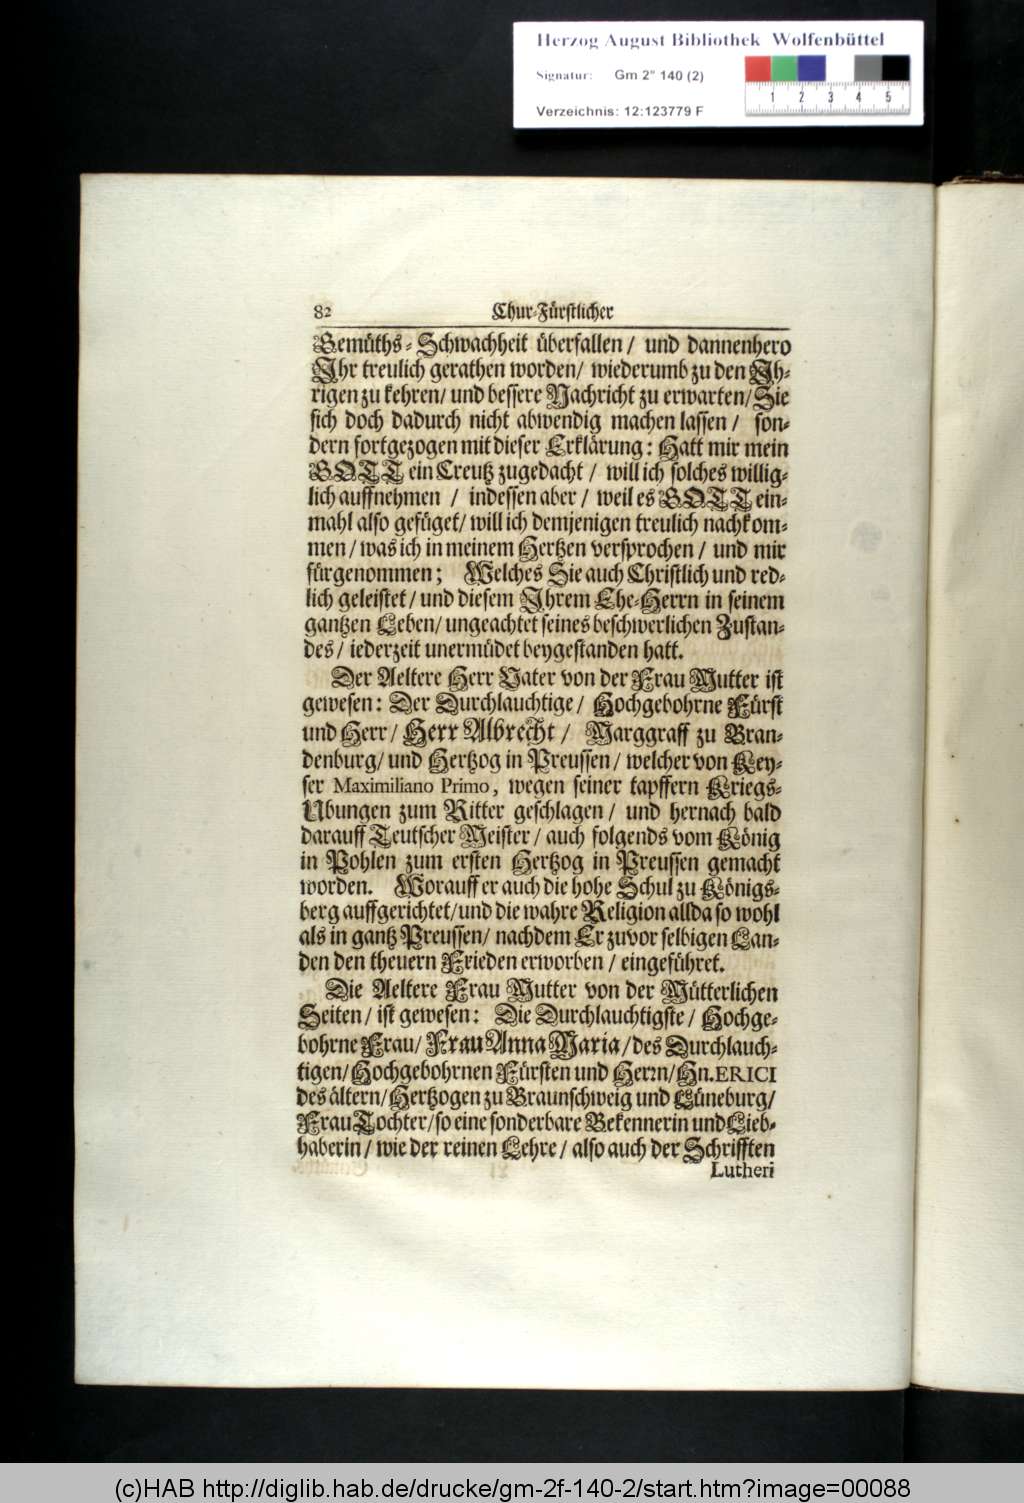 Herzog August Bibliothek Wolfenbüttel
Signatur: Gm 2° 140 (2)
Verzeichnis: 12:123779 F
1 2 3 4 5
82 Chur-Fürstlicher
Gemüths-Schwachheit überfallen/ und dannenhero
Ihr treulich gerathen worden/ wiederumb zu den Ih-
rigen zu kehren/ und bessere Nachricht zu erwarten/ Sie
sich doch dadurch nicht abwendig machen lassen/ son-
dern fortgezogen mit dieser Erklärung: Hatt mir mein
GOTT ein Creutz zugedacht/ will ich solches willig-
lich auffnehmen / indessen aber/ weil es GOTT ein-
mahl also gefüget/ will ich demjenigen treulich nachkom-
men/ was ich in meinem Hertzen versprochen/ und mir
fürgenommen; Welches Sie auch Christlich und red-
lich geleistet/ und diesem Ihrem Ehe-Herrn in seinem
gantzen Leben/ ungeachtet seines beschwerlichen Zustan-
des/ iederzeit unermüdet beygestanden hatt.
Der Aeltere Herr Vater von der Frau Mutter ist
gewesen: Der Durchlauchtige/ Hochgebohrne Fürst
und Herr/ Herr Albrecht/ Marggraff zu Bran-
denburg/ und Hertzog in Preussen/ welcher von Key-
ser Maximiliano Primo, wegen seiner tapffern Kriegs-
Ubungen zum Ritter geschlagen/ und hernach bald
darauff Teutscher Meister/ auch folgends vom König
in Pohlen zum ersten Hertzog in Preussen gemacht
worden. Worauff er auch die hohe Schul zu Königs-
berg auffgerichtet/ und die wahre Religion allda so wohl
als in gantz Preussen/ nachdem Er zuvor selbigen Lan-
den den theuern Frieden erworben/ eingeführet.
Die Aeltere Frau Mutter von der Mütterlichen
Seiten/ ist gewesen: Die Durchlauchtigste/ Hochge-
bohrne Frau/ Frau Anna Maria/ des Durchlauch-
tigen/ Hochgebohrnen Fürsten und Herrn/ Hn. ERICI
des ältern/ Hertzogen zu Braunschweig und Lüneburg/
Frau Tochter/ so eine sonderbare Bekennerin und Lieb-
haberin/ wie der reinen Lehre/ also auch der Schrifften
Lutheri
(c)HAB http://diglib.hab.de/drucke/gm-2f-140-2/start.htm?image=00088